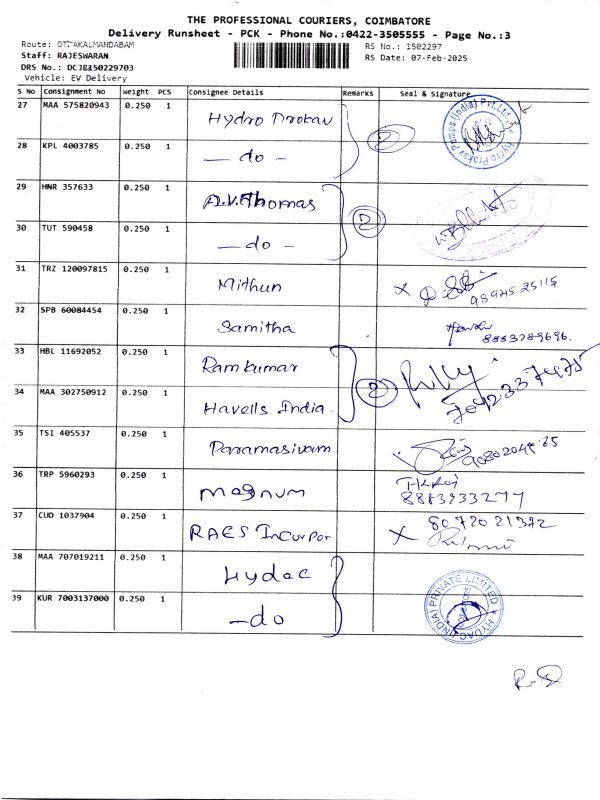 THE PROFESSIONAL COURIERS, COIMBATORE
Delivery Runsheet - PCK - Phone No.:0422-3505555 - Page No.:3
Route: OTTAKALMANDABAM
RS No.: 1502297
Staff: RAJESWARAN
RS Date: 07-Feb-2025
DRS No.: DCJB150229703
Vehicle: EV Delivery
S No Consignment No Weight PCS Consignee Details Remarks Seal & Signature
27 MAA 575820943 0.250 1 Hydro Prokav 2
Hydro Prokav Pumps (India) Pvt. Ltd.
28 KPL 4003785 0.250 1 — do -
29 HNR 357633 0.250 1 A.V.Thomas 2
30 TUT 590458 0.250 1 — do -
31 TRZ 120097815 0.250 1 Mithun X
32 SPB 60084454 0.250 1 Samitha 8883789696.
33 HBL 11692052 0.250 1 Ramkumar 2
34 MAA 302750912 0.250 1 Havells India
35 TSI 405537 0.250 1 Paramasivam
36 TRP 5960293 0.250 1 Magnum
8883933277
37 CUD 1037904 0.250 1 RAES Incorpor X
38 MAA 707019211 0.250 1 Hydac
HYDAC (INDIA) PRIVATE LIMITED
39 KUR 7003137000 0.250 1 — do